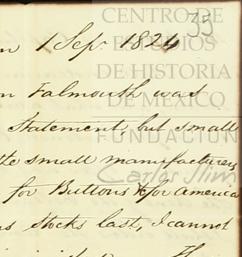 35
n 1 Sep 1824
CENTRO DE
ESTUDIOS
DE HISTORIA
DE MEXICO
FUNDACIÓN
Carlos Slim
n Falmouth was
Statement, but small
the small manufacturers
for Buttons & for america
s Stocks last, I cannot